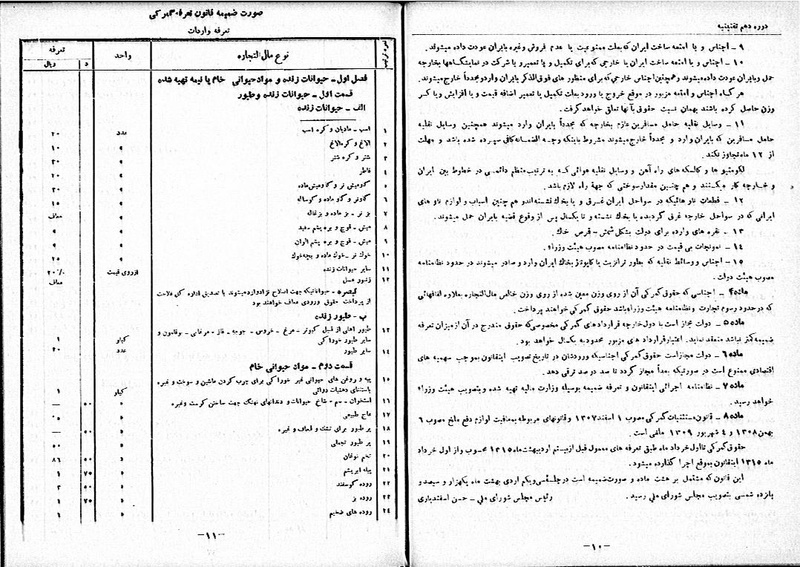 دوره دهم تقنینیه
۹ - اجناس و یا امتعه ساخت ایران که بعلت ممنوعیت یا عدم فروش وغیره بایران عودت داده میشوند .
۱۰ - اجناس و یا امتعه ساخت ایران یا خارجی که برای تکمیل و یا تعمیر و یا شرکت در نمایشگاهها بخارجه
حمل و بایران عودت داده میشوند و همچنین اجناس خارجی که برای منظور های فوق الذکر بایران وارد و مجدداً خارج میشوند.
هر گاه اجناس و امتعه مزبور در موقع خروج یا ورود بعلت تکمیل یا تعمیر اضافه قیمت و یا افزایش و یا کسر
وزن حاصل کرده باشند بهمان نسبت حقوق بآنها تعلق خواهد گرفت.
۱۱ - وسایل نقلیه حامل مسافرین عازم بخارجه که مجدداً بایران وارد میشوند همچنین وسایل نقلیه
حامل مسافرین که بایران وارد و مجدداً خارج میشوند مشروط باینکه وجه الضمانه کافی سپرده شده باشد و مهلت
از ۱۲ ماه تجاوز نکند .
لکوموتیو ها و کالسکه های راه آهن و وسایل نقلیه هوائی که به ترتیب منظم دائمی در خطوط بین ایران
و خارجه کار میکنند و هم چنین مقدار سوختی که جهة راه لازم باشد .
۱۲ - قطعات ناو هائیکه در سواحل ایران غرق و یا بخاک نشسته اند و هم چنین اسباب و لوازم ناو های
ایرانی که در سواحل خارجه غرق گردیده یا بخاک نشسته و تا یکسال پس از وقوع قضیه بایران حمل میشوند.
۱۳ - نقره های وارده برای دولت بشکل شمش - قرص خاک .
۱۴ - نمونجات بی قیمت در حدود نظامنامه مصوب هیئت وزراء .
۱۵ - اجناس و وسائط نقلیه که بطور ترانزیت یا کابوتاژ بخاک ایران وارد و صادر میشوند در حدود نظامنامه
مصوب هیئت دولت .
ماده ۴ - اجناسی که حقوق گمرکی آن از روی وزن معین شده از روی وزن خالص مال التجاره بعلاوه لفافهائی
که در حدود رسوم تجارت و نظامنامه هیئت وزراء باشد حقوق گمرکی خواهند پرداخت .
ماده ۵ - دولت مجاز است با دول خارجه قرارداد های گمرکی مخصوصی که حقوق مندرج در آن از میزان تعرفه
ضمیمه کمتر نباشد منعقد نماید. اعتبار قرارداد های مزبور محدود به یکسال خواهد بود.
ماده ۶ - دولت مجاز است حقوق گمرکی اجناسیکه ورودشان در تاریخ تصویب این قانون بموجب سهمیه های
اقتصادی ممنوع است در صورتیکه بعداً مجاز گردد تا صد در صد ترقی دهد .
ماده ۷ - نظامنامه اجرائی این قانون و تعرفه ضمیمه بوسیله وزارت مالیه تهیه شده و بتصویب هیئت وزراء
خواهد رسید .
ماده ۸ - قانون مستثنیات گمرکی مصوب ۱ اسفند ۱۳۰۷ و قانونهای مربوطه بمعافیت لوازم دفع ملخ مصوب ۶
بهمن ۱۳۰۸ و ۴ شهریور ۱۳۰۹ ملغی است .
حقوق گمرکی تا اول خرداد ماه طبق تعرفه های معمول قبل از بیستم اردیبهشت ماه ۱۳۱۵ محسوب و از اول خرداد
ماه ۱۳۱۵ این قانون بموقع اجرا گذارده میشود .
این قانون که مشتمل بر هشت ماده و صورت ضمیمه است در جلسه سی و یکم اردی بهشت ماه یکهزار و سیصد و
پانزده شمسی بتصویب مجلس شورای ملی رسید . رئیس مجلس شورای ملی - حسن اسفندیاری
-۱۰-
صورت ضمیمه قانون تعرفه گمرکی
تعرفه واردات
نوع مال التجاره واحد تعرفه
ریال د
فصل اول - حیوانات زنده و مواد حیوانی خام یا نیمه تهیه شده
قسمت اول - حیوانات زنده و طیور
الف - حیوانات زنده
۱ اسب - مادیان و کره اسب عدد ۲۰
۲ الاغ و کره الاغ » ۱۰
۳ شتر و کره شتر » ۲۰
۴ قاطر » ۴۰
۵ گاومیش نر و گاومیش ماده » ۲۰
۶ گاو نر و گاو ماده و گوساله » ۱۵
۷ بز نر - بز ماده و بزغاله » معاف
۸ میش - قوچ و بره پشم سفید » »
۹ میش - قوچ و بره پشم الوان » »
۱۰ خوک نر - خوک ماده و بچه خوک » ۲۵
۱۱ سایر حیوانات زنده از روی قیمت ۲۰٪
۱۲ زنبور عسل معاف
تبصره - حیواناتیکه جهت اصلاح نژاد وارد میشوند با تصدیق اداره کل فلاحت
از پرداخت حقوق ورودی معاف خواهند بود
ب - طیور زنده
۱۳ طیور اهلی از قبیل کبوتر - مرغ - خروس - جوجه - غاز - مرغابی - بوقلمون و
سایر طیور خوراکی کیلو ۱
۱۴ سایر طیور عدد ۲۰
قسمت دوم - مواد حیوانی خام
۱۵ پیه و روغن های حیوانی غیر خوراکی برای چرب کردن ماشین و سوخت و غیره
باستثنای دهنیات دوائی کیلو ۱
۱۶ استخوان - سم - شاخ حیوانات و دندانهای نهنگ جهت ساختن کرست و غیره » — ۵۰
۱۷ عاج طبیعی » ۰۵
۱۸ پر طیور برای تشک و لحاف و غیره » — ۵۰
۱۹ پر طیور تجملی » ۵۰
۲۰ تخم نوغان » ۸۶ ۵۰
۲۱ پیله ابریشم » ۱ ۷۵
۲۲ روده گوسفند » ۲ ۵۰
۲۳ روده بز » ۱ ۷۵
۲۴ روده های ضخیم » ۱
-۱۱-